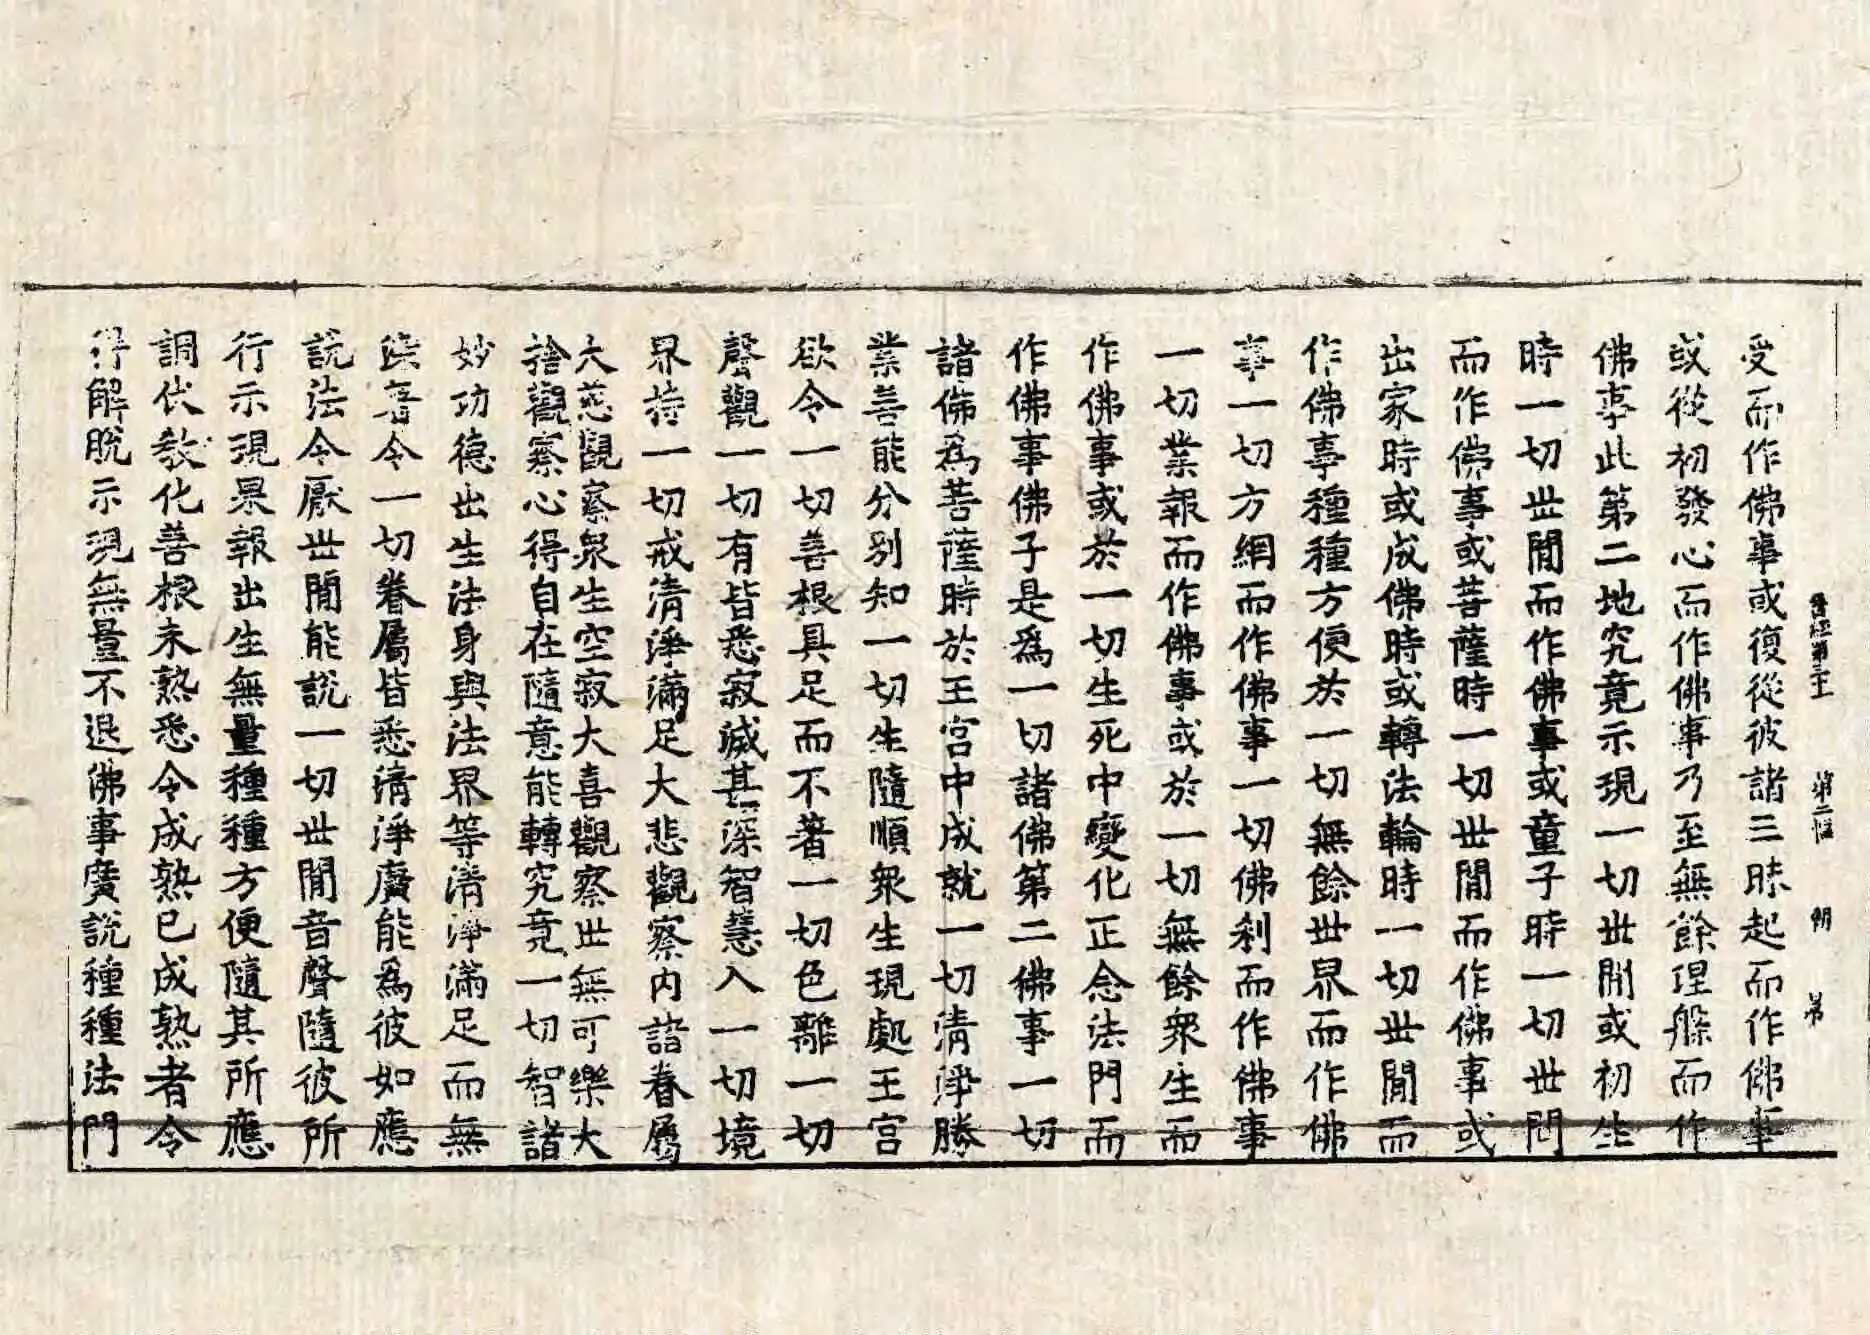 晉經第三十一 第二十張 朝
受而作佛事或復從彼諸三昧起而作佛事
或從初發心而作佛事乃至無餘涅槃而作
佛事此第二地究竟示現一切世間或初生
時一切世間而作佛事或童子時一切世間
而作佛事或菩薩時一切世間而作佛事或
出家時或成佛時或轉法輪時一切世間而
作佛事種種方便於一切無餘世界而作佛
事一切方網而作佛事一切佛刹而作佛事
一切業報而作佛事或於一切無餘衆生而
作佛事或於一切生死中變化正念法門而
作佛事佛子是爲一切諸佛第二佛事一切
諸佛爲菩薩時於王宮中成就一切清淨勝
業善能分別知一切生隨順衆生現處王宮
欲令一切善根具足而不著一切色離一切
聲觀一切有皆悉寂滅甚深智慧入一切境
界持一切戒清淨滿足大悲觀察內諸眷屬
大慈觀察衆生空寂大喜觀察世無可樂大
捨觀察心得自在隨意能轉究竟一切智諸
妙功德出生法身與法界等清淨滿足而無
染著令一切眷屬皆悉淸淨廣能爲彼如應
說法令厭世間能說一切世間音聲隨彼所
行示現果報出生無量種種方便隨其所應
調伏敎化善根未熟悉令成熟已成熟者令
得解脫示現無量不退佛事廣說種種法門